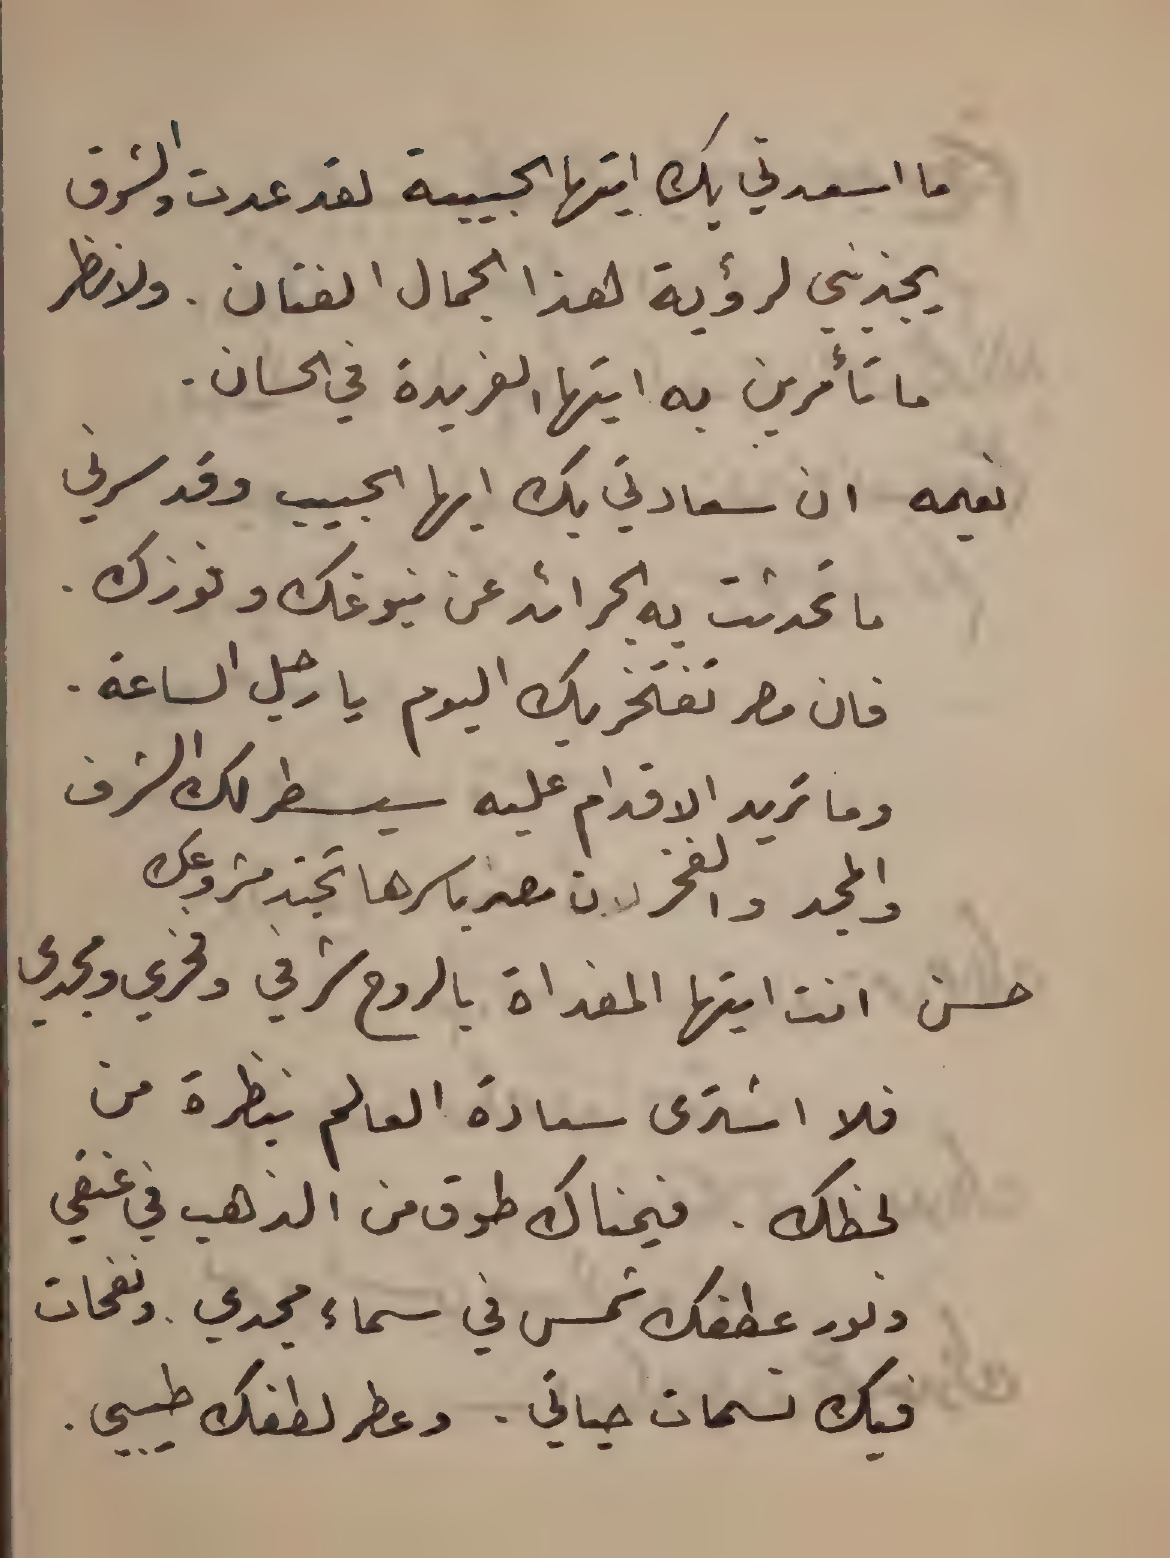 ما اسعدني بك ايتها الحبيبة لقد عدت والشوق
يجذبني لرؤية هذا الجمال الفتان . ولانظر
ما تأمرين به ايتها الفريدة في الحسان .
نعيمه ان سعادتي بك ايها الحبيب وقد سرني
ما تحدثت به الجرائد عن نبوغك وفوزك .
فان مصر تفتخر بك اليوم يا رجل الساعة .
وما تريد الاقدام عليه سيسطر لك الشرف
والمجد والفخر لان مصر باسرها تحبذ مشروعك
حسن انت ايتها المفداة بالروح شرفي وفخري ومجدي
فلا اشترى سعادة العالم بنظرة من
لحظك . فيمناك طوق من الذهب في عنقي
ونور عطفك شمس في سماء مجدي . ونفحات
فيك نسمات حياتي . وعطر لطفك طيبي .